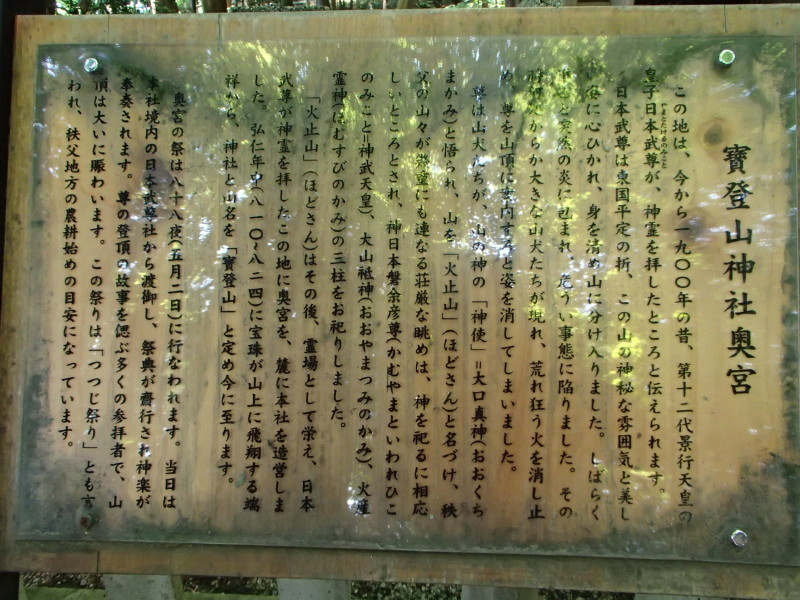 寶登山神社奥宮
この地は、今から一九〇〇年の昔、第十二代景行天皇の
皇子日本武尊が、神霊を拝したところと伝えられます。
やまとたけるのみこと
日本武尊は東国平定の折、この山の神秘な雰囲気と美し
に心ひかれ、身を清め山に分け入りました。しばらく
突然の炎に包まれ、危うい事態に陥りました。その
時何処からか大きな山犬たちが現れ、荒れ狂う火を消し止
め、尊を山頂に案内すると姿を消してしまいました。
尊は山犬たちが、山の神の「神使」＝大口真神(おおくち
まかみ)と悟られ、山を「火止山」(ほどさん)と名づけ、秩
父の山々が幾重にも連なる荘厳な眺めは、神を祀るに相応
しいところとされ、神日本磐余彦尊(かむやまといわれひこ
のみこと＝神武天皇)、大山祗神(おおやまつみのかみ)、火産
霊神(ほむすびのかみ)の三柱をお祀りしました。
「火止山」(ほどさん)はその後、霊場として栄え、日本
武尊が神霊を拝したこの地に奥宮を、麓に本社を造営しま
した。弘仁年中(八一〇～八二四)に宝珠が山上に飛翔する端
祥から、神社と山名を「寶登山」と定め今に至ります。
奥宮の祭は八十八夜(五月二日)に行なわれます。当日は
本社境内の日本武尊社から渡御し、祭典が齋行され神楽が
奉奏されます。尊の登頂の故事を偲ぶ多くの参拝者で、山
頂は大いに賑わいます。この祭りは「つつじ祭り」とも言
われ、秩父地方の農耕始めの目安になっています。